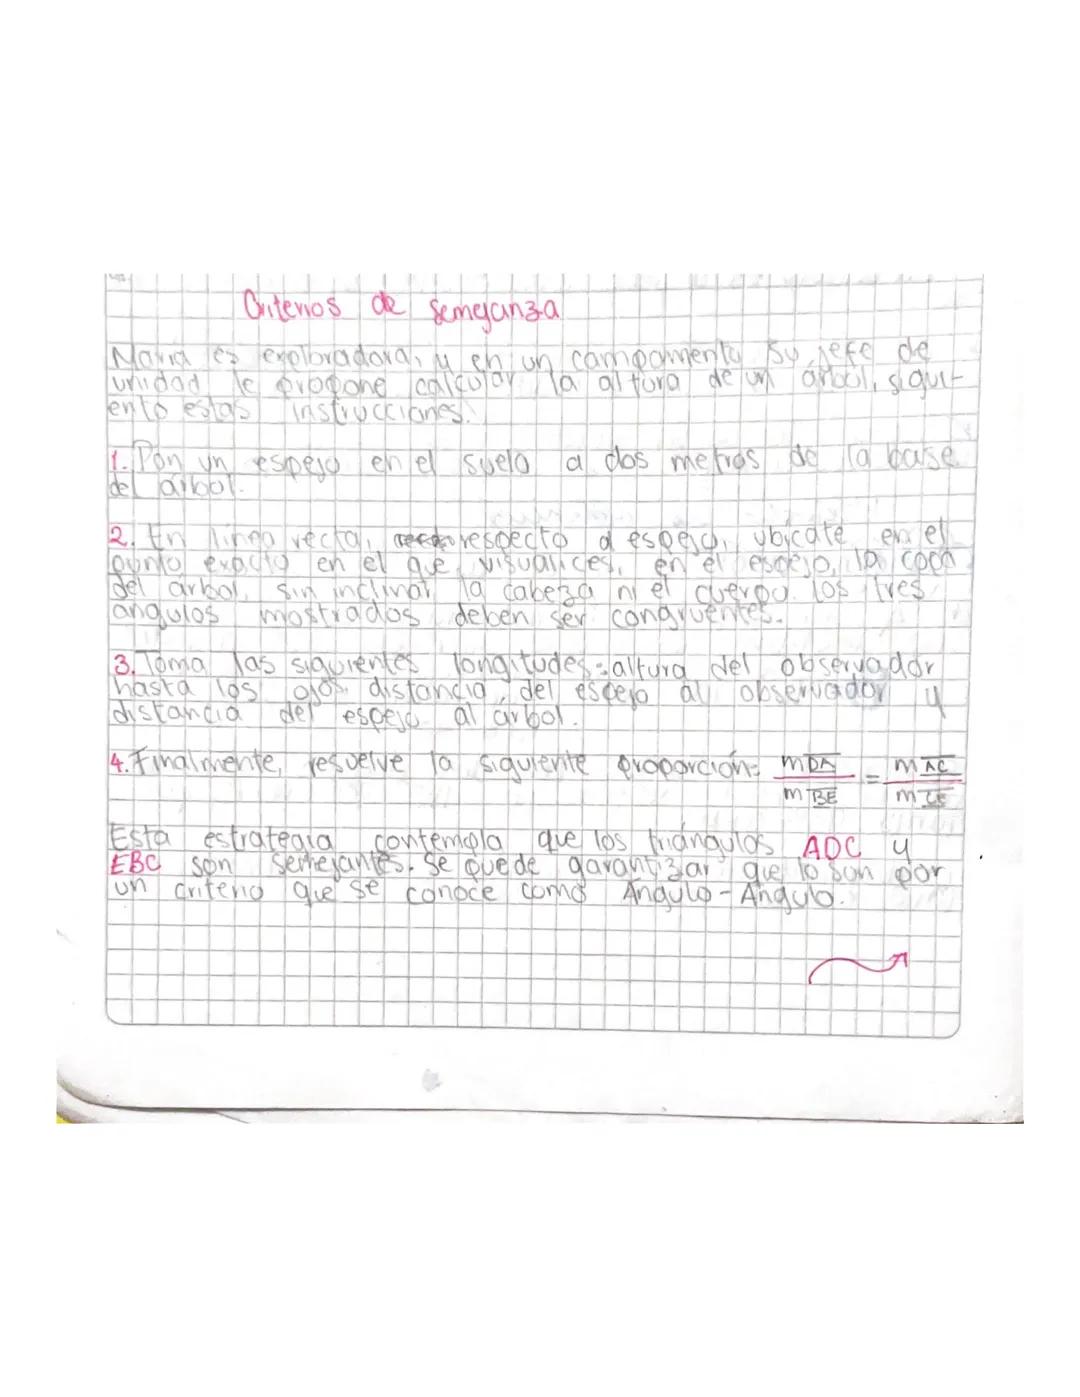 Criterios de semejanza
María es exploradora, y en un campamento su jefe de
unidad le propone calcular la altura de un árbol, sigui-
ento estas instrucciones:
1. Pon un espejo en el suelo a dos metros de la base
del árbol.
2. En línea recta, respecto al espejo, ubícate en el
punto exacto en el que visualices, en el espejo, la copa
del árbol, sin inclinar la cabeza ni el cuerpo. Los tres
ángulos mostrados deben ser congruentes.
3. Toma las siguientes longitudes: altura del observador
hasta los ojos, distancia del espejo al observador y
distancia del espejo al árbol.
4. Finalmente, resuelve la siguiente proporción: mDA/mBE = mAC/mCE
Esta estrategia contempla que los triángulos ADC y
EBC son semejantes. Se puede garantizar que lo son por
un criterio que se conoce como Ángulo-Ángulo.